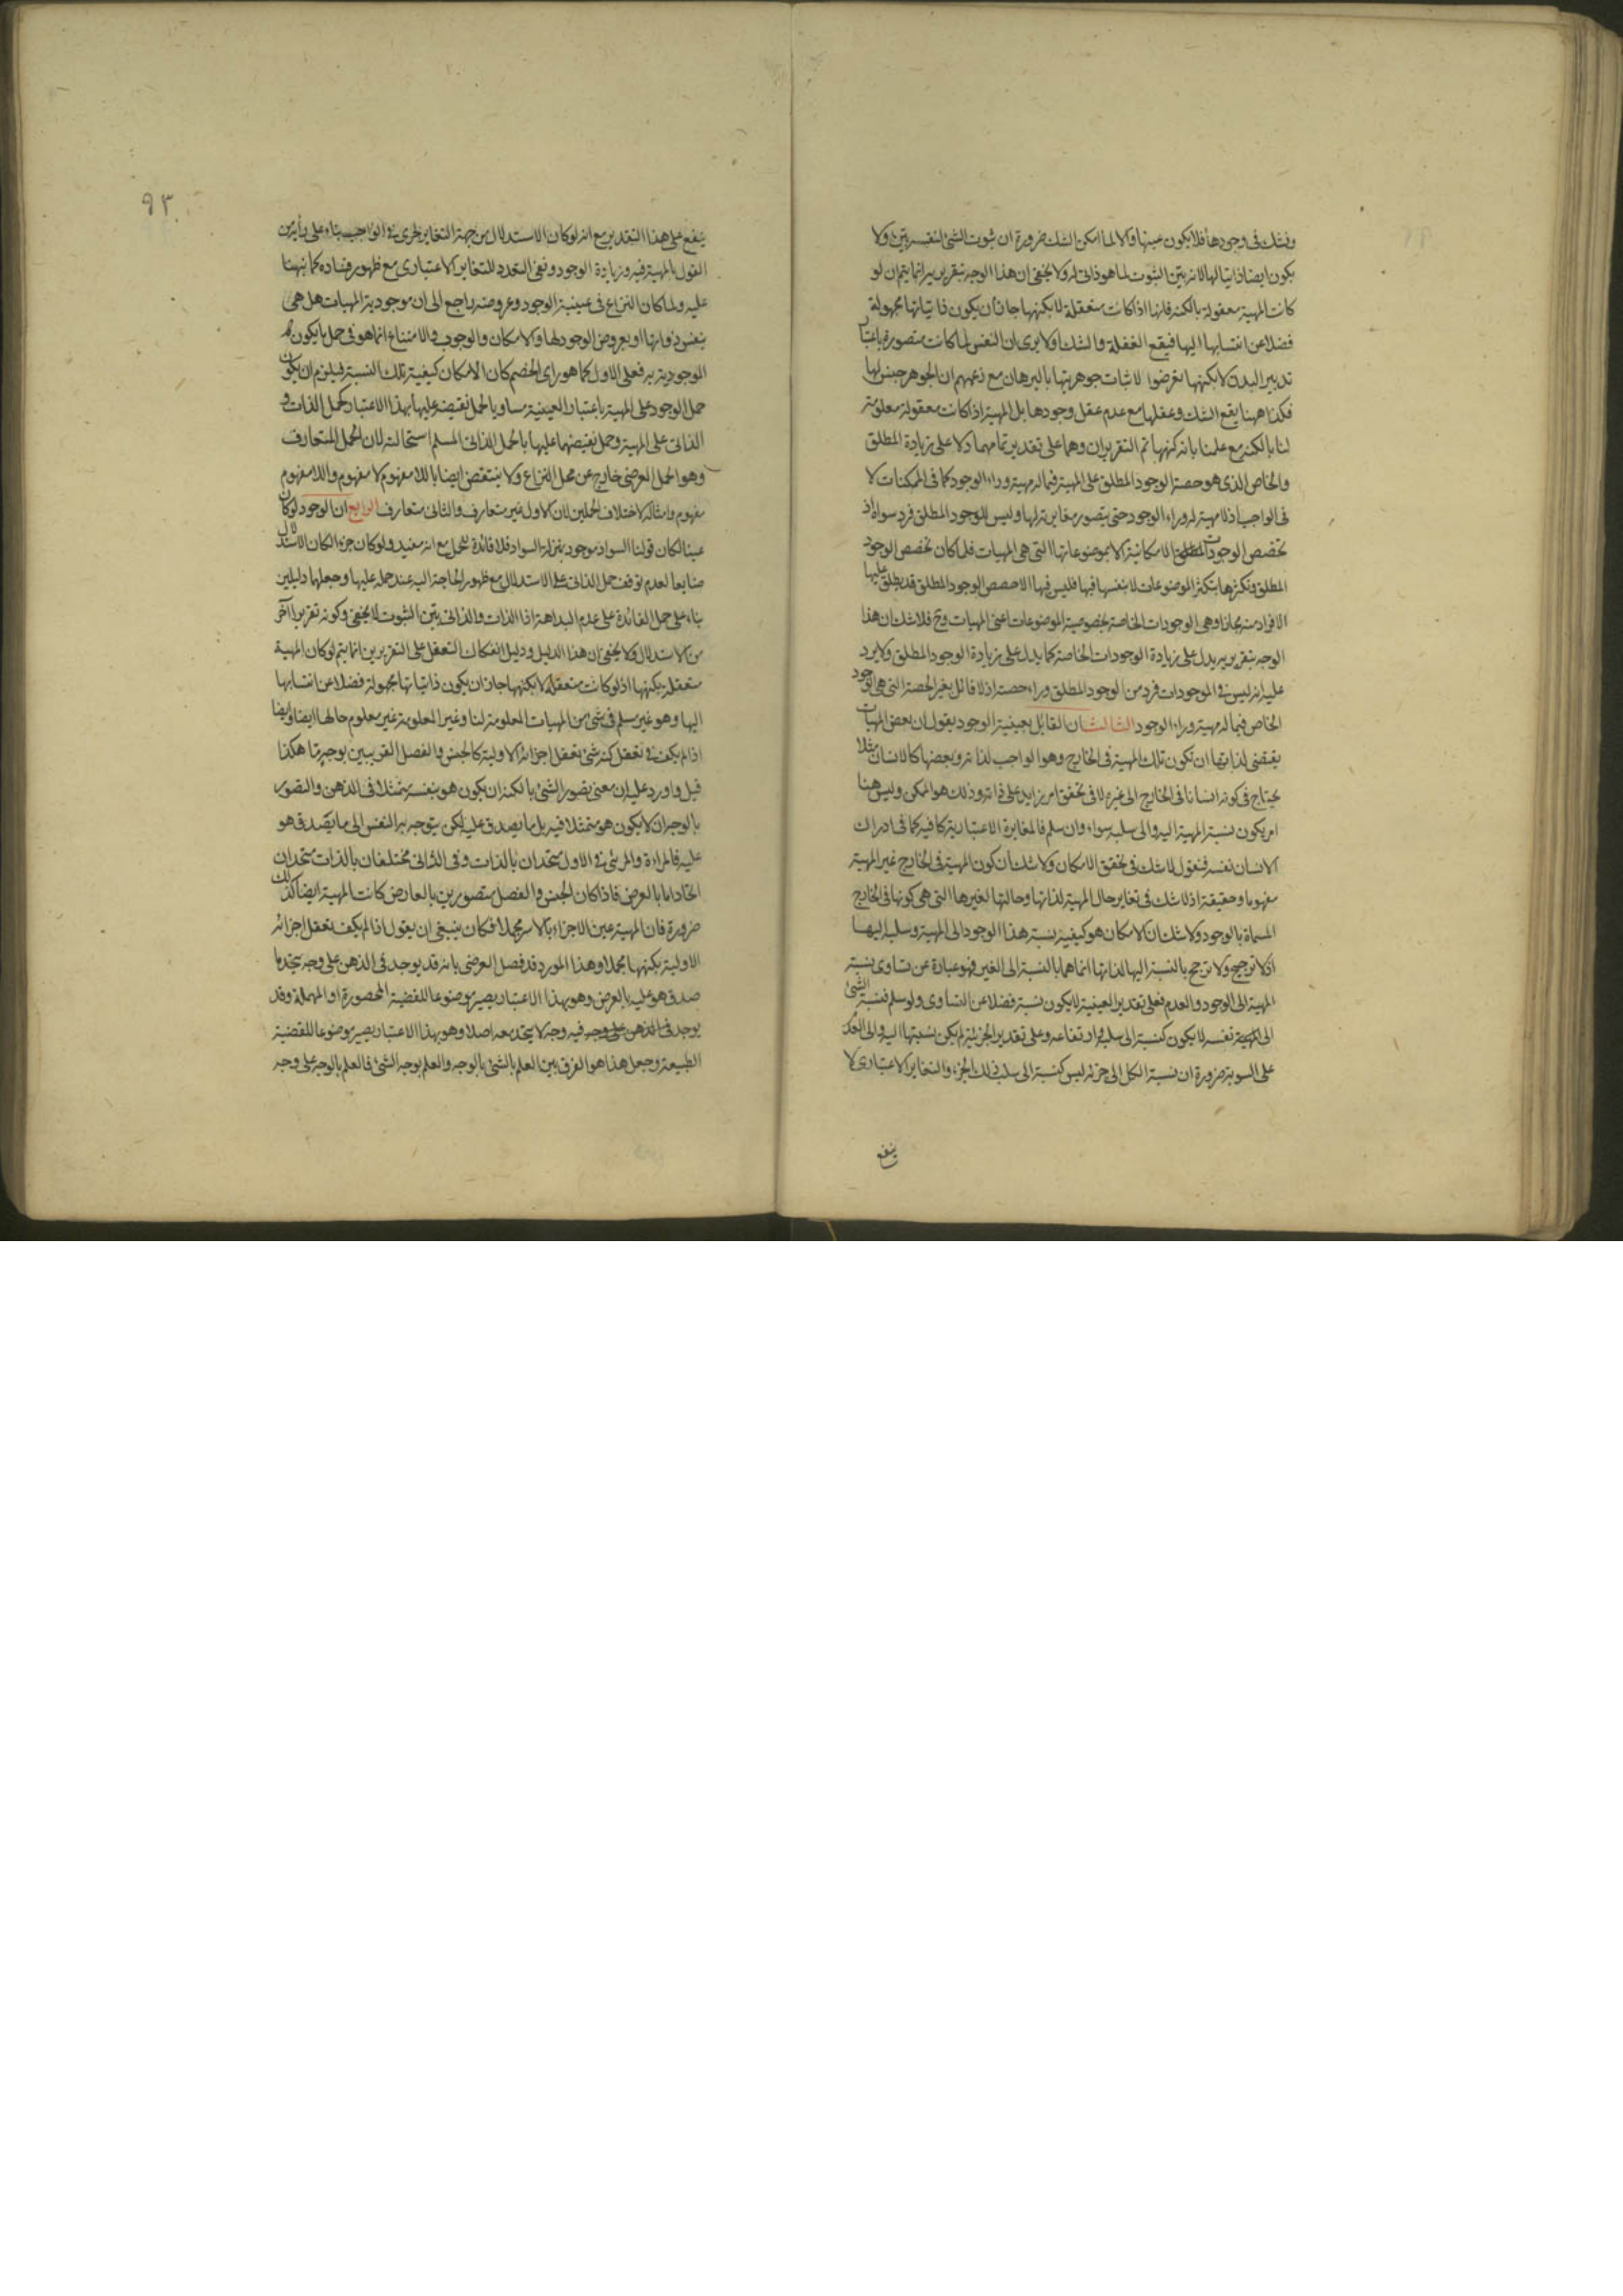 ونشك فى وجودها فلا يكون عينها والا لما امكن الشك ضرورة ان ثبوت الشئ لنفسه بيّن ولا
يكون ايضا ذاتيا لها لانه بيّن الثبوت لما هو ذاتى له ولا يخفى ان هذا الوجه بتقريريه انما يتم ان لو
كانت المهية معقولة بالكنه فانها اذا كانت متعقلة لا بكنهها جاز ان يكون ذاتياتها مجهولة
فضلا عن انتسابها اليها فيقع الغفلة والشك اولا يرى ان النفس لما كانت متصورة باعتبار
تدبير البدن لا بكنهها تعرضوا لاثبات جوهريتها بالبرهان مع زعمهم ان الجوهر جنس لها
فكذا ههنا يقع الشك وعقلها مع عدم عقل وجودها بل المهية اذا كانت معقولة معلومة
لنا بالكنه مع علمنا بانه كنهها تم التقريران وهما على تقدير تمامهما دلا على زيادة المطلق
والخاص الذى هو حصة الوجود المطلق على المهية فيما له مهية وراء الوجود كما فى الممكنات لا
فى الواجب اذ لا مهية له وراء الوجود حتى يتصور مغايرته لها وليس للوجود المطلق فرد سواه اذ
تخصص الوجودات الامكانية الا بموضوعاتها التى هى المهيات فلما كان تخصص الوجود
المطلق وتكثرها بتكثر الموضوعات لا بنفسها فيها فليس فيها الا حصص الوجود المطلق قد يطلق عليها
الافراد منه مجازا وهى الوجودات الخاصة بخصوصية الموضوعات اعنى المهيات وح فلا شك ان هذا
الوجه بتقريريه يدل على زيادة الوجودات الخاصة كما يدل على زيادة الوجود المطلق ولا يرد
عليه انه ليس فى الموجودات فرد من الوجود المطلق وراء حصته اذ لا قائل بغير الحصة التى هى الوجود
الخاص فيما له مهية وراء الوجود الثالث ان القايل بعينية الوجود يقول ان بعض المهيات
يقتضى لذاتها ان تكون تلك المهية فى الخارج وهو الواجب لذاته وبعضها كالانسان مثلا
يحتاج فى كونه انسانا فى الخارج الى غيره لا فى تحقق امر زايد على ذاته وذلك هو الممكن وليس هنا
امر يكون نسبة المهية اليه والى سلبه سواء وان سلم فالمغايرة الاعتبارية كافية كما فى ادراك
الانسان نفسه فنقول لا شك فى تحقق الامكان ولا شك ان كون المهية فى الخارج غير المهية
مفهوما وحقيقة اذ لا شك فى تغاير حال المهية لذاتها وحالتها لغيرها التى هى كونها فى الخارج
المسماة بالوجود ولا شك ان الامكان هو كيفية نسبة هذا الوجود الى المهية وسلبه اليها
اذ لا ترجيح ولا ترجح بالنسبة اليها لذاتها انما هما بالنسبة الى الغير فهو عبارة عن تساوى نسبة
المهية الى الوجود والعدم فعلى تقدير العينية لا يكون نسبة فضلا عن التساوى ولو سلم فنسبة الشئ
الى نفسه لا يكون كنسبته الى سلبه وارتفاعه وعلى تقدير الجزئية لم يكن نسبتها اليه والى العدم
على السوية ضرورة ان نسبة الكل الى جزئه ليس كنسبته الى سلب ذلك الجزء والتغاير الاعتبارى لا
ينفع
٩٣
ينفع على هذا التقدير مع انه لو كان الاستدلال من جهة التغاير لجرى فى الواجب بناء على
القول بالمهية فيه وزيادة الوجود ونفى التعدد للتغاير الاعتبارى مع ظهور فساده كما نبهنا
عليه ولما كان النزاع فى عينية الوجود وعروضه راجع الى ان موجودية المهيات هل هى
بنفس ذواتها او بعروض الوجود لها والامكان والوجوب والامتناع انما هو فى حمل ما يكون
الموجودية به فعلى الاول كما هو راى الخصم كان الامكان كيفية تلك النسبة فيلزم ان يكون
حمل الوجود على المهية باعتبار العينية مساويا لحمل نقيضه عليها بهذا الاعتبار كحمل الذات و
الذاتى على المهية وحمل نقيضهما عليها بالحمل الذاتى المسلم استحالته لان الحمل المتعارف
وهو الحمل العرضى خارج عن محل النزاع ولا ينتقض ايضا باللا مفهوم لا مفهوم واللا مفهوم
مفهوم وامثاله لاختلاف الحملين لان الاول غير متعارف والثانى متعارف الرابع ان الوجود لو كان
عينا لكان قولنا السواد موجود بمنزلة السواد فلا فائدة للحمل مع انه مفيد ولو كان جزء لكان الاستدلال
ضايعا لعدم توقف حمل الذاتى على الاستدلال مع ظهور الحاجة اليه عند حمله عليها وجعلهما دليلين
بناء على حمل الفائدة على عدم البداهة اذ الذات والذاتى بيّن الثبوت لا يخفى وكونه تقريرا آخر
من الاستدلال ولا يخفى ان هذا الدليل ودليل انفكاك التعقل على التقريرين انما يتم لو كان المهية
متعقلة بكنهها اذ لو كانت متعقلة لا بكنهها جاز ان يكون ذاتياتها مجهولة فضلا عن انتسابها
اليها وهو غير مسلم فى شئ من المهيات المعلومة لنا وغير المعلومة غير معلوم حالها ايضا وايضا
اذا لم يكف فى تعقل كنه شئ تعقل اجزائه الاولية كالجنس والفصل القريبين بوجه ما هكذا
قيل واورد عليه ان معنى تصور الشئ بالكنه ان يكون هو بنفسه متمثلا فى الذهن والتصور
بالوجه ان لا يكون هو متمثلا فيه بل ما يصدق عليه لكن يتوجه به النفس الى ما يصدق هو
عليه فالمراة والمرئى فى الاول متحدان بالذات وفى الثانى مختلفان بالذات متحدان
اتحادا ما بالعرض فاذا كان الجنس والفصل متصورين بالعارض كانت المهية ايضا كذلك
ضرورة فان المهية عين الاجزاء بالاسر مجملا فكان ينبغى ان يقول اذا لم يكف تعقل اجزائه
الاولية بكنهها مجملا وهذا المورد قد فصل العرضى بانه قد يوجد فى الذهن على وجه يتحد ما
صدق هو عليه بالعرض وهو بهذا الاعتبار يصير موضوعا للقضية المحصورة او المهملة وقد
يوجد فى الذهن على وجه لا يتحد معه اصلا وهو بهذا الاعتبار يصير موضوعا للقضية
الطبيعية وجعل هذا هو الفرق بين العلم بالشئ بالوجه والعلم بوجه الشئ فالعلم بالوجه على وجه